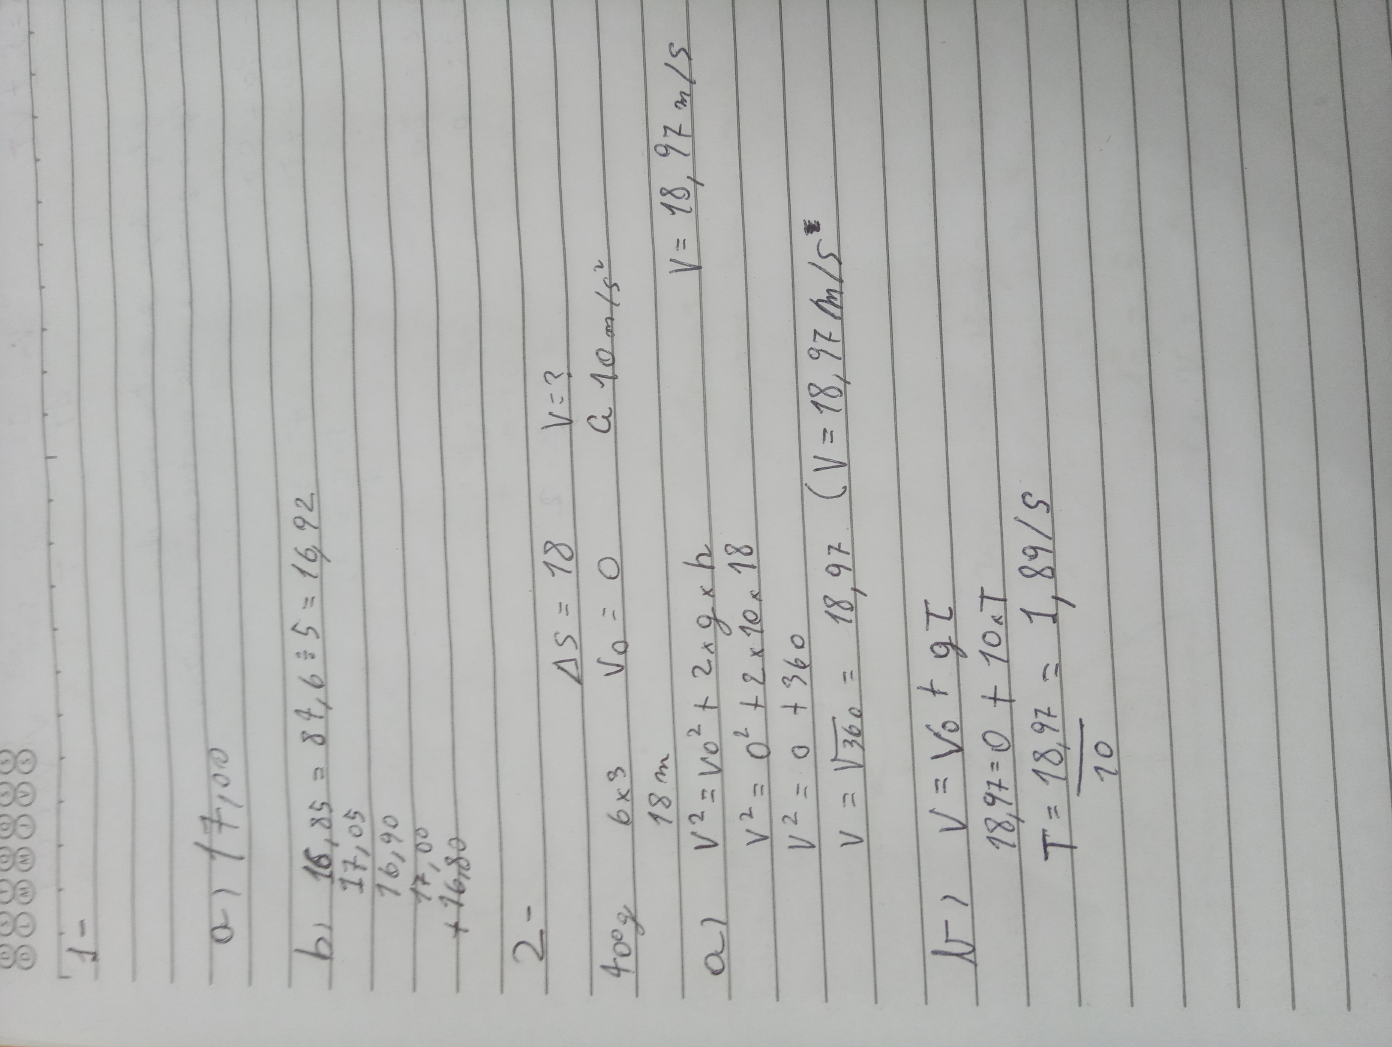 1-
a) 17,00
b) 16,85 = 84,6÷5 = 16,92
17,05
16,90
17,00
+16,80
2-
ΔS = 18 V=?
400g 6x3 V0 = 0 a 10 m/s²
18 m
a) V² = V0² + 2xgxh V = 18,97 m/s
V² = 0² + 2x10x18
V² = 0 + 360
V = √360 = 18,97 (V = 18,97 m/s
b) V = V0 + gT
18,97 = 0 + 10xT
T = 18,97 = 1,89/s
10